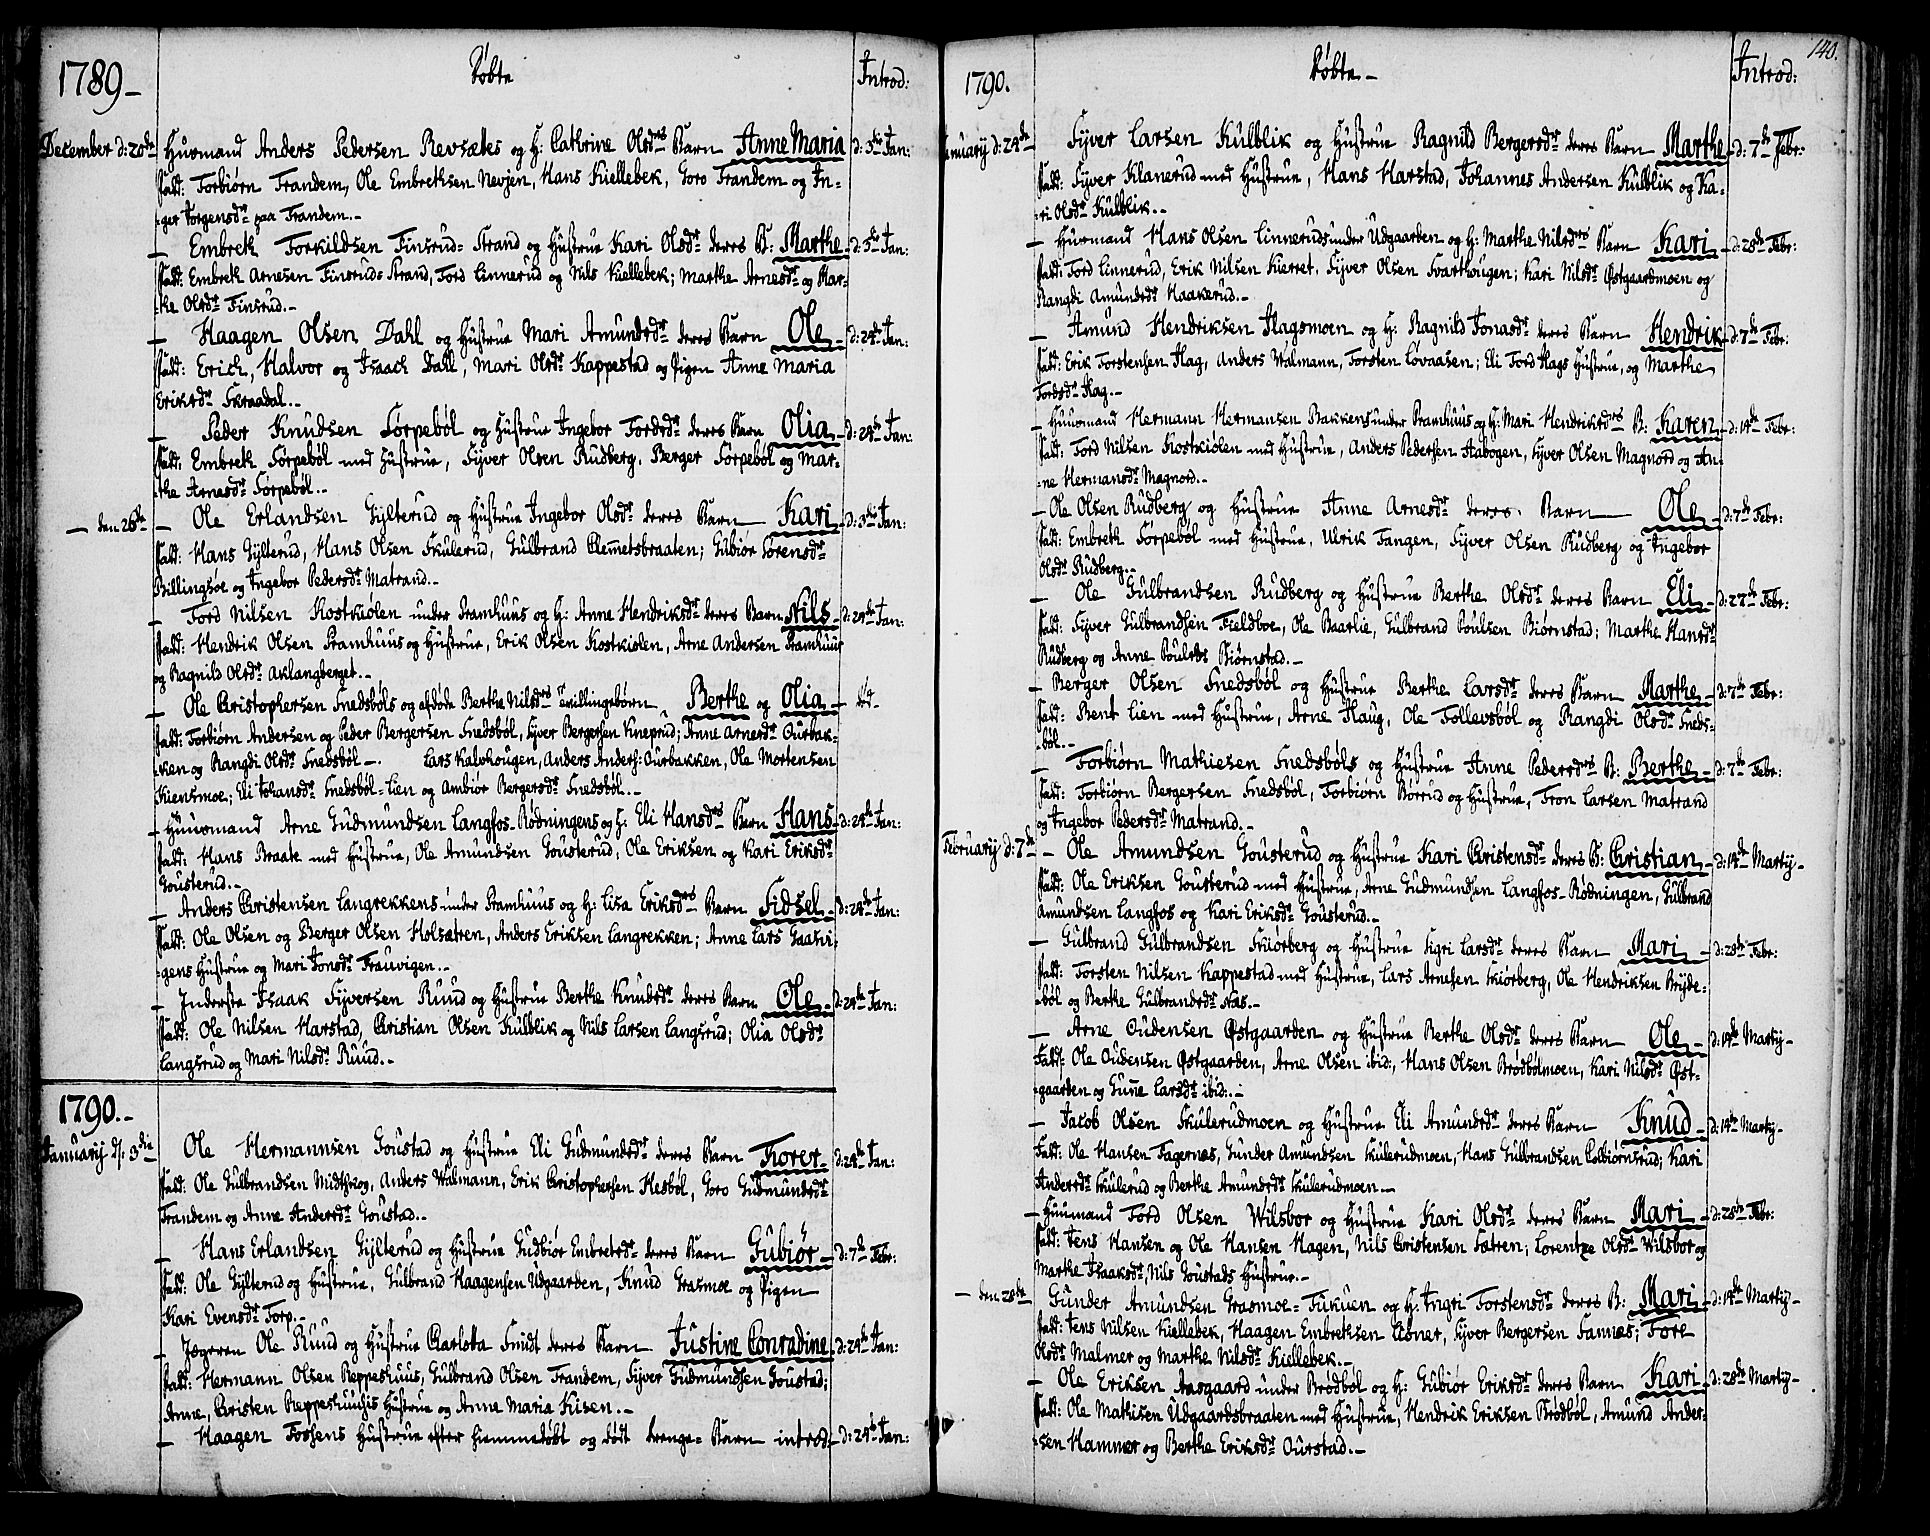 1789 -
Døbte
Introd:
December d: 20de Huusmand Anders Pedersen Revsætes og H: Cathrine Olsdrs Barn Anne Maria d: 3die Jan:
Fadd: Torbiørn Trandem, Ole Embretsen Nevjen, Hans Kiellebek, Goro Trandem og In-
-ger Jorgensdr paa Trandem.-
- Embrek Torkildsen Finsrud-Strand og Hustrue Kari Olsdr deres B: Marthe - d: 3die Jan:
Fadd: Embrek Arnesen Finsruds-Strand, Tord Linnerud og Nils Kiellebek; Marthe Arnesdr og Mar-
-the Olsdr Finsrud.-
- Haagen Olsen Dahl og Hustrue Mari Amundsdr deres Barn Ole - d: 24de Jan:
Fadd: Erich, Halvor og Isaach Dahl, Mari Olsdr Kappestad og Pigen Anne Maria
Eriksdr Skraadal.-
- Peder Knudsen Sørpebøl og Hustrue Ingebor Tordsdr deres Barn Olia - d: 24de Jan:
Fadd: Embrek Sørpebøl med Hustrue, Syver Olsen Rudberg, Berger Sørpebøl og Mar-
-the Arnesdr Sørpebøl.-
- den 26de - Ole Erlandsen Gylterud og Hustrue Ingebor Olsdr deres Barn - Kari - d: 3die Jan:
Fadd: Hans Gylterud, Hans Olsen Skulerud, Gulbrand Clemetsbraaten; Gubiør Sørensdr
Billingsøe og Ingebor Pedersdr Matrand.-
- Tord Nilsen Kostkiølen under Framhuus og H: Anne Hendriksdr deres Barn Nils - d: 24de Jan:
Fadd: Hendrik Olsen Framhuus og Hustrue, Erik Olsen Kostkiølen, Arne Andersen Framhuus
og Ragnild Olsdr Aklangberget.-
- Ole Christophersen Snedsbøls og afdøde Berthe Nilsdrs tvillingebørn, Berthe og Olia -
Fadd: Torbiørn Andersen og Peder Bergersen Snedsbøl, Syver Bergersen Kneprud; Anne Arnesdr Ourbak-
-ken og Rangdi Olsdr Snedsbøl -. Lars Kalvhougen, Anders Anders: Ourbakken, Ole Mortensen
Kiensmoe; Eli Johansdr Snedsbøl-Lien og Ambiør Bergersdr Snedsbøl.-
- Huusmand Arne Gudmundsen Langfos-Rødningens og H: Eli Hansdrs Barn Hans - d: 24de Jan:
Fadd: Hans Braate med Hustrue, Ole Amundsen Gousterud, Ole Eriksen og Kari Eriksdr
Gousterud.-
- Anders Christensen Langrekkens under Framhuus og H: Lisa Eriksdrs Barn Sidsel - d: 24de Jan:
Fadd: Ole Olsen og Berger Olsen Holsætren, Anders Eriksen Langrekken; Anne Lars Gaasvi-
-gens Hustrue og Mari Jonsdr Trauvigen.-
- Inderste Isaak Syversen Ruud og Hustrue Berthe Knudsdr deres Barn Ole - d: 24de Jan:
Fadd: Ole Nilsen Harstad, Christian Olsen Kulblik og Nils Larsen Langsrud; Olia Olsdr
Langsrud og Mari Nilsdr Ruud.-
1790.-
Januarij d: 3die Ole Hermannsen Goustad og Hustrue Eli Gudmundsdr deres Barn Torer - d: 24de Jan:
Fadd: Ole Gulbrandsen Midtskog, Anders Walmann, Erik Christophersen Hesbøl, Goro Gudmundsdr
Trandem og Anne Andersdr Goustad.-
- Hans Erlandsen Gylterud og Hustrue Gudbiør Embretsdr deres Barn Gubiør - d: 7de Febr:
Fadd: Ole Gylterud og Hustrue, Gulbrand Haagensen Udgaarden, Knud Grasmoe og Pigen
Kari Evensdr Torp.-
- Jægeren Ole Ruud og Hustrue Charlotta Smidt deres Barn Justine Conradine d: 24de Jan:
Fadd: Hermann Olsen Reppeshuus, Gulbrand Olsen Trandem, Syver Gudmundsen Goustad;
Anne, Christen Reppeshuuses Hustrue og Anne Maria Kisen.-
- Haagen Fossens Hustrue efter hiemmedøbt og død drenge-Barn introd: - d: 24de Jan:
140.
1790.
Døbte -
Introd:
Januarij d: 24de Syver Larsen Kulblik og Hustrue Ragnild Bergersdr deres Barn Marthe - d: 7de Febr:
Fadd: Syver Klanerud med Hustrue, Hans Harstad, Johannes Andersen Kulblik og Ka-
-ri Olsdr Kulblik.-
- Huusmand Hans Olsen Linneruds under Udgaarden og H: Marthe Nilsdrs Barn Kari - d: 28de Febr:
Fadd: Tord Linnerud, Erik Nilsen Kierret, Syver Olsen Svarthougen; Kari Nilsdr Østgaardmoen og
Rangdi Amundsdr Haakerud.-
- Amund Hendriksen Hagsmoen og H: Ragnild Jonasdr deres Barn Hendrik - d: 7de Febr:
Fadd: Erik Torstensen Hag, Anders Walmann, Torsten Løvaasen; Eli Tord Hags Hustrue, og Marthe
Tordsdr Hag.-
- Huusmand Hermann Hermansen Bakkens under Framhuus og H: Mari Hendriksdrs B: Karen - d: 14de Febr:
Fadd: Tord Nilsen Kostkiølen med Hustrue, Anders Pedersen Aabogen, Syver Olsen Magnord og An-
-ne Hermansdr Magnord.-
- Ole Olsen Rudberg og Hustrue Anne Arnesdr deres Barn - Ole - d: 7de Febr:
Fadd: Embrek Sørpebøl med Hustrue, Ulrik Tangen, Syver Olsen Rudberg og Ingebor
Olsdr Rudberg.-
- Ole Gulbrandsen Rudberg og Hustrue Berthe Olsdr deres Barn Eli - d: 27de Febr:
Fadd: Syver Gulbrandsen Fieldboe, Ole Baarlie, Gulbrand Poulsen Biørnstad; Marthe Hansdr
Rudberg og Anne Poulsdr Biørnstad.-
- Berger Olsen Snedsbøl og Hustrue Berthe Larsdr deres Barn Marthe - d: 7de Febr:
Fadd: Bent Lien med Hustrue, Arne Haug, Ole Tollevsbøl og Rangdi Olsdr Sneds-
-bøl.-
- Torbiørn Mathiesen Snedsbøls og Hustrue Anne Pedersdrs B: Berthe - d: 7de Febr:
Fadd: Torbiørn Bergersen Snedsbøl, Torbiørn Børrud og Hustrue, Tron Larsen Matrand
og Ingebor Pedersdr Matrand.-
Februarij d: 7de - Ole Amundsen Gousterud og Hustrue Kari Christensdr deres B: Christian - d: 14de Martij -
Fadd: Ole Eriksen Gousterud med Hustrue, Arne Gudmundsen Langfos-Rødningen, Gulbrand
Amundsen Langfos og Kari Eriksdr Gousterud.-
- Gulbrand Gulbrandsen Skiørberg og Hustrue Sigri Larsdr deres Barn Mari - d: 28de Febr:
Fadd: Torsten Nilsen Kappestad med Hustrue, Lars Arnesen Skiørberg, Ole Hendriksen Bryde-
-bøl og Berthe Gulbrandsdr Næs.-
- Arne Oudensen Østgaarden og Hustrue Berthe Olsdr deres Barn Ole - d: 14de Martij -
Fadd: Ole Oudensen Østgaarden, Arne Olsen ibid:, Hans Olsen Brødbølmoen, Kari Nilsdr Øst-
-gaarden og Gunne Larsdr ibid:.-
- Jacob Olsen Skulerudmoen og Hustrue Eli Amundsdr deres Barn Knud - d: 14de Martij -
Fadd: Ole Hansen Fagernes, Gunder Amundsen Skulerudmoen, Hans Gulbrandsen Colbiørnsrud; Kari
Andersdr Skulerud og Berthe Amundsdr Skulerudmoen.-
- Huusmand Tord Olsen Wilsbor og Hustrue Kari Olsdr deres Barn Mari - d: 28de Febr:
Fadd: Jens Hansen og Ole Hansen Hagen, Nils Christensen Sætren; Lorentze Olsdr Wilsbor og
Marthe Isaaksdr, Nils Goustads Hustrue.-
- den 28de Gunder Amundsen Grasmoe-Tukuen og H: Ingri Torstensdr deres B: Mari - d: 14de Martij -
Fadd: Jens Nilsen Kiellebek, Haagen Embretsen Ebner, Syver Bergersen Sannæs; Tore
Olsdr Malmer og Marthe Nilsdr Kiellebek.-
- Ole Eriksen Aasgaard under Brødbøl og H: Gubiør Eriksdr deres Barn Kari - d: 28de Martij -
Fadd: Ole Mathisen Udgaardsbraaten med Hustrue, Hendrik Eriksen Brødbøl, Amund Ander-
-sen Hammer og Berthe Eriksdr Ourstad.-